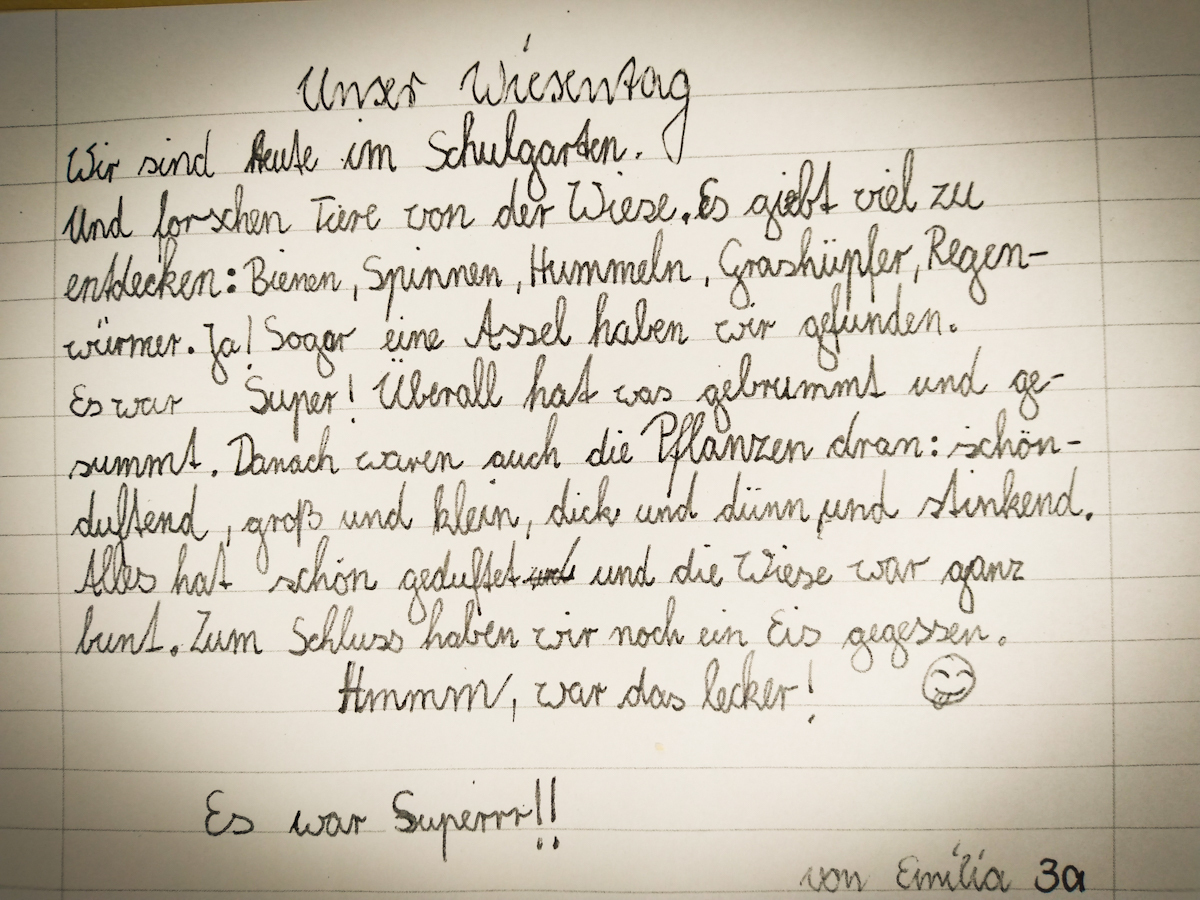 Unser Wiesentag
Wir sind Heute im Schulgarten.
Und forschen Tiere von der Wiese. Es giebt viel zu
entdecken: Bienen, Spinnen, Hummeln, Grashüpfer, Regen-
würmer. Ja! Sogar eine Assel haben wir gefunden.
Es war Super! Überall hat was gebrummt und ge-
summt. Danach waren auch die Pflanzen dran: schön-
duftend, groß und klein, dick und dünn, und stinkend.
Alles hat schön geduftet und die Wiese war ganz
bunt. Zum Schluss haben wir noch ein Eis gegessen.
Hmmm, war das lecker!
Es war Superrr!!
von Emilia 3a